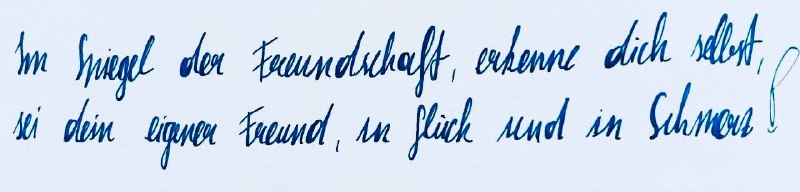 Im Spiegel der Freundschaft, erkenne dich selbst,
sei dein eigener Freund, in Glück und in Schmerz!